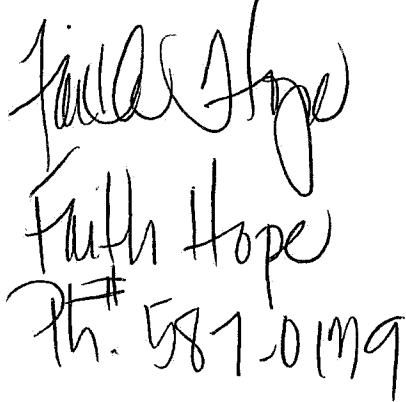 Faith Hope
Faith Hope
Ph.# 587-0179